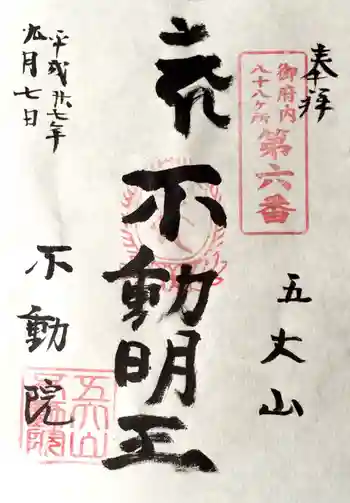 奉拝
御府内
八十八ケ所
第六番
五大山
不動明王
平成廿七年
九月七日
不動院